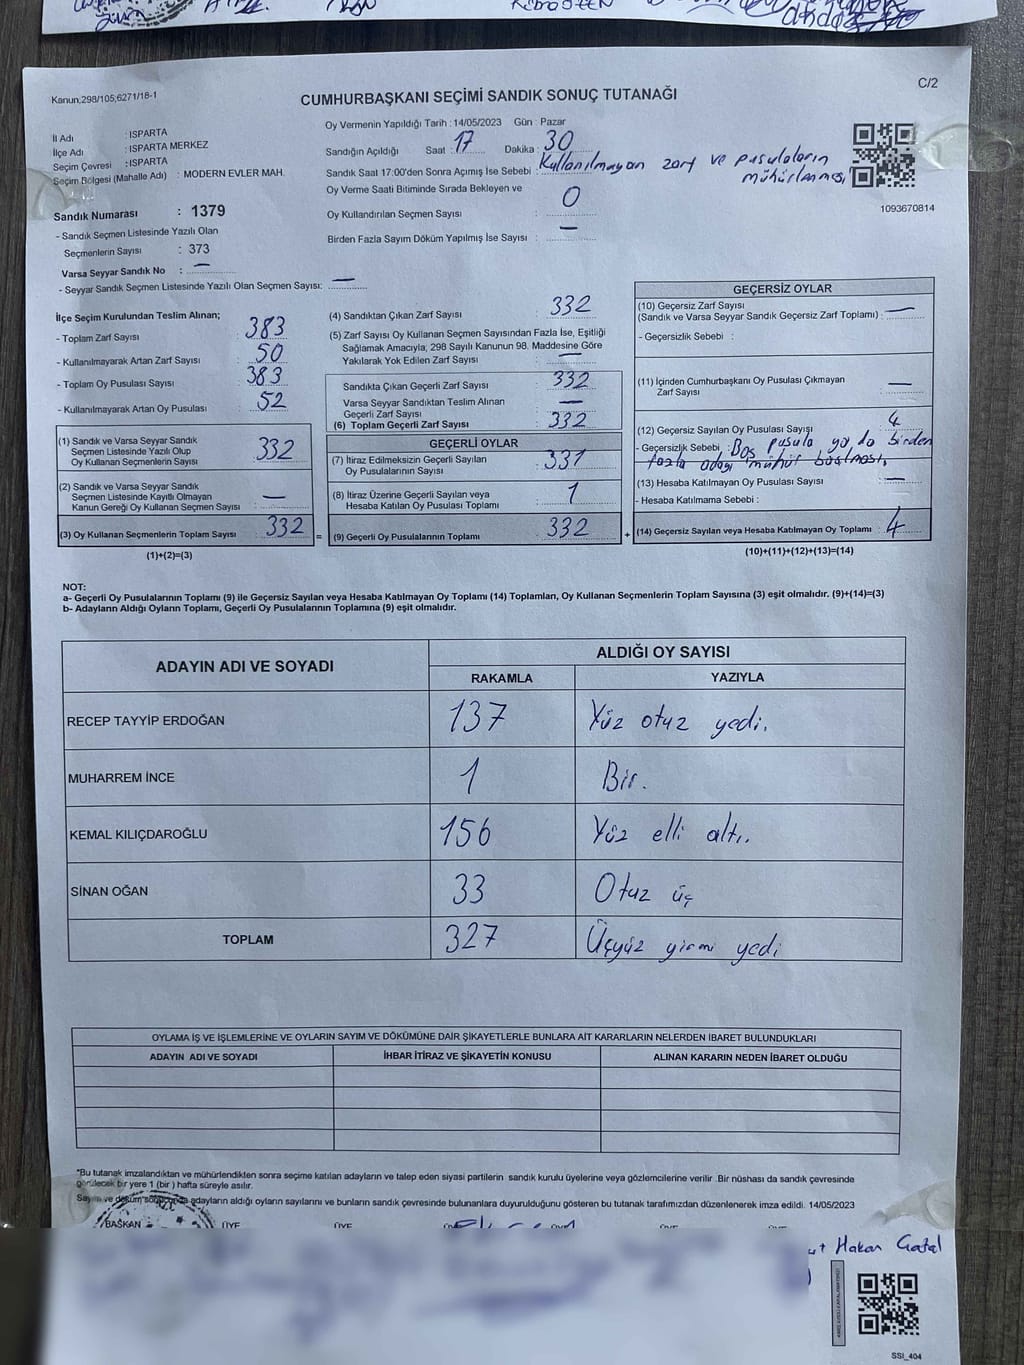 Kanun;298/105;6271/18-1
C/2
CUMHURBAŞKANI SEÇİMİ SANDIK SONUÇ TUTANAĞI
İl Adı : ISPARTA
İlçe Adı : ISPARTA MERKEZ
Seçim Çevresi : ISPARTA
Seçim Bölgesi (Mahalle Adı) : MODERN EVLER MAH.
Sandık Numarası : 1379
- Sandık Seçmen Listesinde Yazılı Olan
Seçmenlerin Sayısı : 373
Varsa Seyyar Sandık No : —
- Seyyar Sandık Seçmen Listesinde Yazılı Olan Seçmen Sayısı: —
Oy Vermenin Yapıldığı Tarih : 14/05/2023 Gün : Pazar
Sandığın Açıldığı Saat : 17 Dakika : 30
Sandık Saat 17:00'den Sonra Açımış İse Sebebi : Kullanılmayan zarf ve pusulaların
mühürlenmesi
Oy Verme Saati Bitiminde Sırada Bekleyen ve
Oy Kullandırılan Seçmen Sayısı : 0
Birden Fazla Sayım Döküm Yapılmış İse Sayısı : —
1093670814
İlçe Seçim Kurulundan Teslim Alınan;
- Toplam Zarf Sayısı : 383
- Kullanılmayarak Artan Zarf Sayısı : 50
- Toplam Oy Pusulası Sayısı : 383
- Kullanılmayarak Artan Oy Pusulası : 52
(1) Sandık ve Varsa Seyyar Sandık
Seçmen Listesinde Yazılı Olup
Oy Kullanan Seçmenlerin Sayısı : 332
(2) Sandık ve Varsa Seyyar Sandık
Seçmen Listesinde Kayıtlı Olmayan
Kanun Gereği Oy Kullanan Seçmen Sayısı : —
(3) Oy Kullanan Seçmenlerin Toplam Sayısı : 332 =
(1)+(2)=(3)
(4) Sandıktan Çıkan Zarf Sayısı : 332
(5) Zarf Sayısı Oy Kullanan Seçmen Sayısından Fazla İse, Eşitliği
Sağlamak Amacıyla, 298 Sayılı Kanunun 98. Maddesine Göre
Yakılarak Yok Edilen Zarf Sayısı : —
Sandıkta Çıkan Geçerli Zarf Sayısı : 332
Varsa Seyyar Sandıktan Teslim Alınan
Geçerli Zarf Sayısı : —
(6) Toplam Geçerli Zarf Sayısı : 332
GEÇERLİ OYLAR
(7) İtiraz Edilmeksizin Geçerli Sayılan
Oy Pusulalarının Sayısı : 331
(8) İtiraz Üzerine Geçerli Sayılan veya
Hesaba Katılan Oy Pusulası Toplamı : 1
(9) Geçerli Oy Pusulalarının Toplamı : 332 +
GEÇERSİZ OYLAR
(10) Geçersiz Zarf Sayısı
(Sandık ve Varsa Seyyar Sandık Geçersiz Zarf Toplamı) : —
- Geçersizlik Sebebi :
(11) İçinden Cumhurbaşkanı Oy Pusulası Çıkmayan
Zarf Sayısı : —
(12) Geçersiz Sayılan Oy Pusulası Sayısı : 4
- Geçersizlik Sebebi : Boş pusula ya da birden
fazla adayı mühür basılması.
(13) Hesaba Katılmayan Oy Pusulası Sayısı : —
- Hesaba Katılmama Sebebi :
(14) Geçersiz Sayılan veya Hesaba Katılmayan Oy Toplamı : 4
(10)+(11)+(12)+(13)=(14)
NOT:
a- Geçerli Oy Pusulalarının Toplamı (9) ile Geçersiz Sayılan veya Hesaba Katılmayan Oy Toplamı (14) Toplamları, Oy Kullanan Seçmenlerin Toplam Sayısına (3) eşit olmalıdır. (9)+(14)=(3)
b- Adayların Aldığı Oyların Toplamı, Geçerli Oy Pusulalarının Toplamına (9) eşit olmalıdır.
ADAYIN ADI VE SOYADI ALDIĞI OY SAYISI
RAKAMLA YAZIYLA
RECEP TAYYİP ERDOĞAN 137 Yüz otuz yedi.
MUHARREM İNCE 1 Bir.
KEMAL KILIÇDAROĞLU 156 Yüz elli altı.
SİNAN OĞAN 33 Otuz üç
TOPLAM 327 Üçyüz yirmi yedi
OYLAMA İŞ VE İŞLEMLERİNE VE OYLARIN SAYIM VE DÖKÜMÜNE DAİR ŞİKAYETLERLE BUNLARA AİT KARARLARIN NELERDEN İBARET BULUNDUKLARI
ADAYIN ADI VE SOYADI İHBAR İTİRAZ VE ŞİKAYETİN KONUSU ALINAN KARARIN NEDEN İBARET OLDUĞU
*Bu tutanak imzalandıktan ve mühürlendikten sonra seçime katılan adayların ve talep eden siyasi partilerin sandık kurulu üyelerine veya gözlemcilerine verilir .Bir nüshası da sandık çevresinde
görülecek bir yere 1 (bir ) hafta süreyle asılır.
Sayım ve döküm sonunda adayların aldığı oyların sayılarını ve bunların sandık çevresinde bulunanlara duyurulduğunu gösteren bu tutanak tarafımızdan düzenlenerek imza edildi. 14/05/2023
BAŞKAN ÜYE ÜYE ÜYE ÜYE
Hakan Çatal
SSI_404